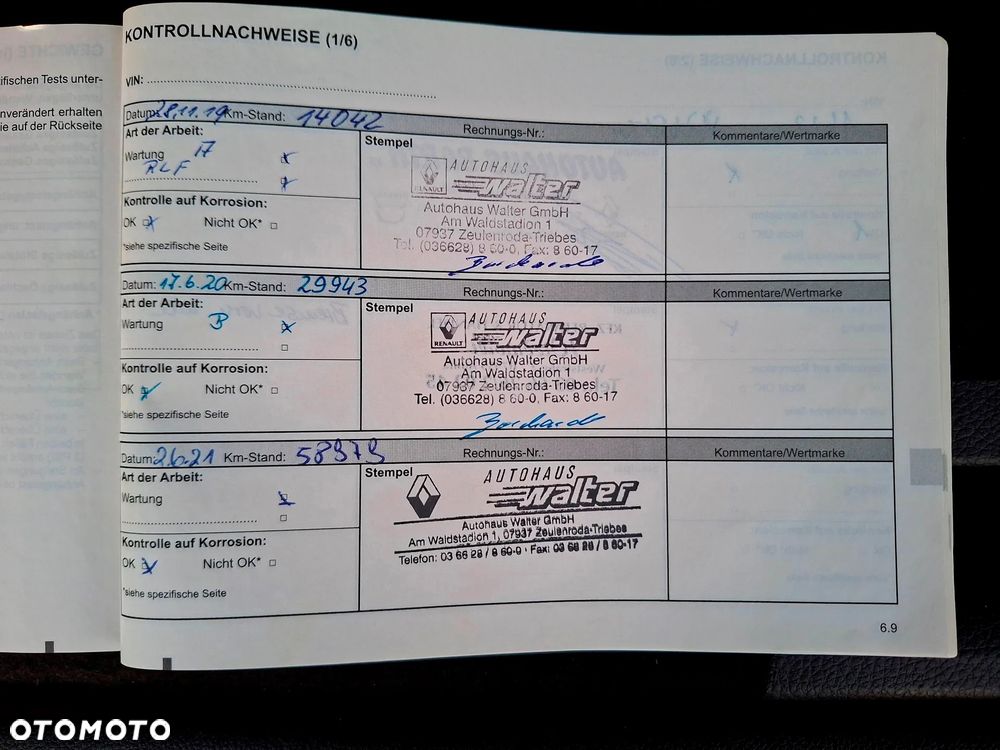 KONTROLLNACHWEISE (1/6)
ifischen Tests unter-
nverändert erhalten
ie auf der Rückseite
VIN:
Datum: 28.11.19 Km-Stand: 14042 Rechnungs-Nr.: Kommentare/Wertmarke
Art der Arbeit:
Wartung
RLF
Kontrolle auf Korrosion:
OK Nicht OK*
*siehe spezifische Seite
Stempel
RENAULT
AUTOHAUS
Walter
Autohaus Walter GmbH
Am Waldstadion 1
07937 Zeulenroda-Triebes
Tel. (036628) 8 60-0, Fax: 8 60-17
Datum: 17.6.20 Km-Stand: 29943 Rechnungs-Nr.: Kommentare/Wertmarke
Art der Arbeit:
Wartung B
Kontrolle auf Korrosion:
OK Nicht OK*
*siehe spezifische Seite
Stempel
RENAULT
AUTOHAUS
Walter
Autohaus Walter GmbH
Am Waldstadion 1
07937 Zeulenroda-Triebes
Tel. (036628) 8 60-0, Fax: 8 60-17
Datum: 2.6.21 Km-Stand: 58979 Rechnungs-Nr.: Kommentare/Wertmarke
Art der Arbeit:
Wartung
Kontrolle auf Korrosion:
OK Nicht OK*
*siehe spezifische Seite
Stempel
AUTOHAUS
Walter
Autohaus Walter GmbH
Am Waldstadion 1, 07937 Zeulenroda-Triebes
Telefon: 03 66 28 / 8 60-0 · Fax: 03 66 28 / 8 60-17
6.9
OTOMOTO